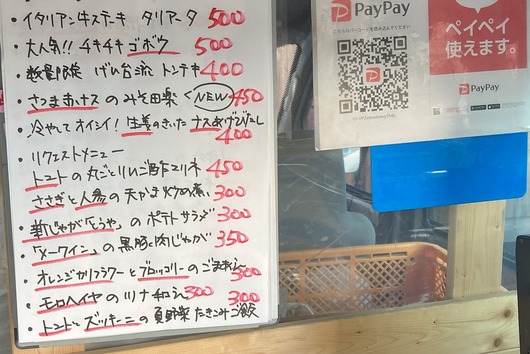 ・イタリアン牛ステーキ タリアータ 500
・大人気!! チキチキゴボウ 500
・数量限定 げん台流 トンテキ 400
・さつま赤ナスのみそ田楽 <NEW> 450
・冷やしてオイシイ! 生姜のきいた ナスあげびたし 400
・リクエストメニュー
トマトの丸ごとりんご酢マリネ 450
ささぎと人参の天かま 煮 300
・新じゃが「とうや」のポテトサラダ 300
・「メークイン」の黒豚と肉じゃが 350
・オレンジカリフラワーとブロッコリーのごまあえ 300
・モロヘイヤのツナ和え 300
・トマトとズッキーニの夏野菜たきこみご飯 300
PayPay
こちらのバーコードを読み込んでください
PayPay
ペイペイ
使えます。
PayPay